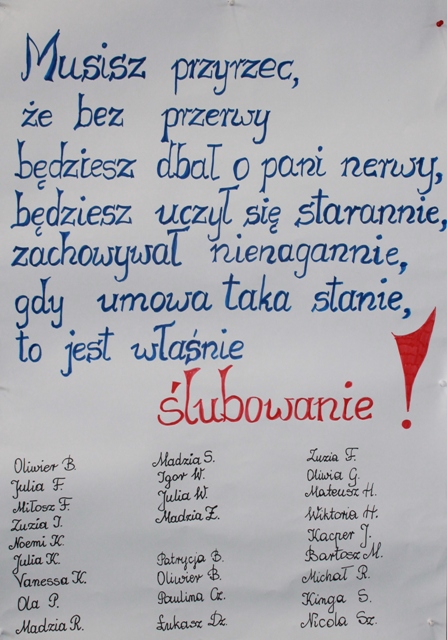 Musisz przyrzec,
że bez przerwy
będziesz dbał o pani nerwy,
będziesz uczył się starannie,
zachowywał nienagannie,
gdy umowa taka stanie,
to jest właśnie
ślubowanie!
Oliwier B.
Julia F.
Miłosz F.
Zuzia I.
Noemi K.
Julia K.
Vanessa K.
Ola P.
Madzia R.
Madzia S.
Igor W.
Julia W.
Madzia Z.
Patrycja B.
Oliwier B.
Paulina Cz.
Łukasz Dz.
Zuzia F.
Oliwia G.
Mateusz H.
Wiktoria H.
Kacper J.
Bartosz M.
Michał R.
Kinga S.
Nicola Sz.